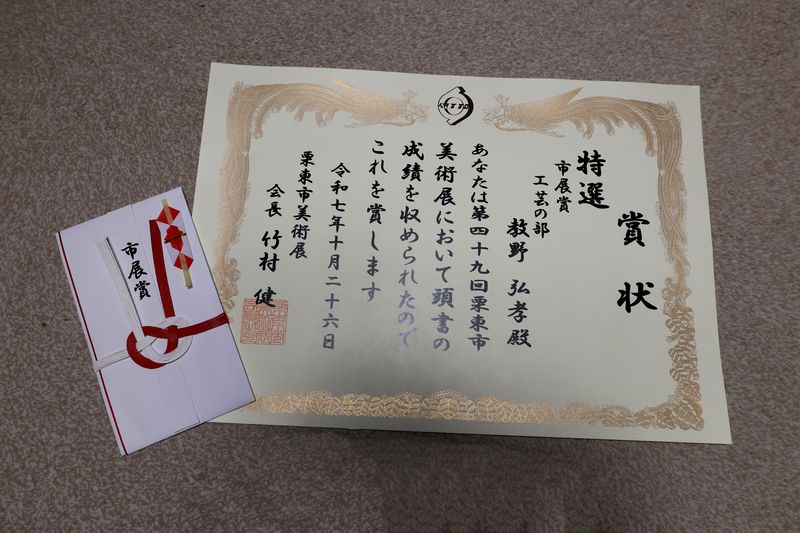 賞状
特選
市展賞
工芸の部
教野 弘孝殿
あなたは第四十九回栗東市
美術展において頭書の
成績を収められたので
これを賞します
令和七年十月二十六日
栗東市美術展
会長 竹村 健
市展賞